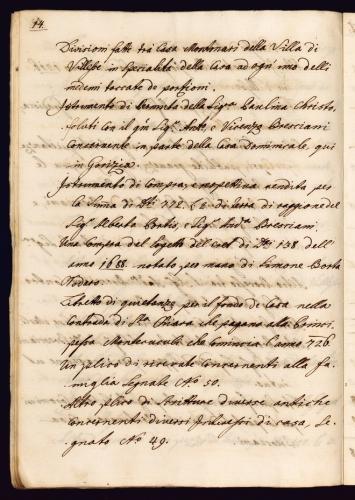 14.
Divisioni fatte trà Casa Montinari della Villa di
Villesse in specialità della Casa ad ogn' uno delli
medemi toccate de porzioni.
Istrumento di Permuta della Sigra Paulina Christo,
foluti con il qm Sigr Anto, e Vicenzo Bresciani
Concernente in parte della Casa Dominicale, qui
in Gorizia.
Istrumento di Compra, e respettiva vendita per
la Summa di 772. £ 2 di terra di raggione del
Sigr Alberto Bortis, e Sigr Anto Bresciani.
Una Compra del 138 dell'
anno 1668. notato per mano di Simone Borta
Nodero.
di quietanze per il fondo de Casa nella
Contrada di Sta Chiara che pagano alla
pessa Montecuculi che Comincia l'anno 726.
Un plico di ricevute Concernenti alla fa,
miglia Segnate No 50.
Altro plico di Scritture diverse antiche
concernenti diversi Interessi di casa, Se,
gnato No 49.